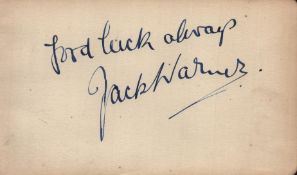 Good luck always
Jack Warner.